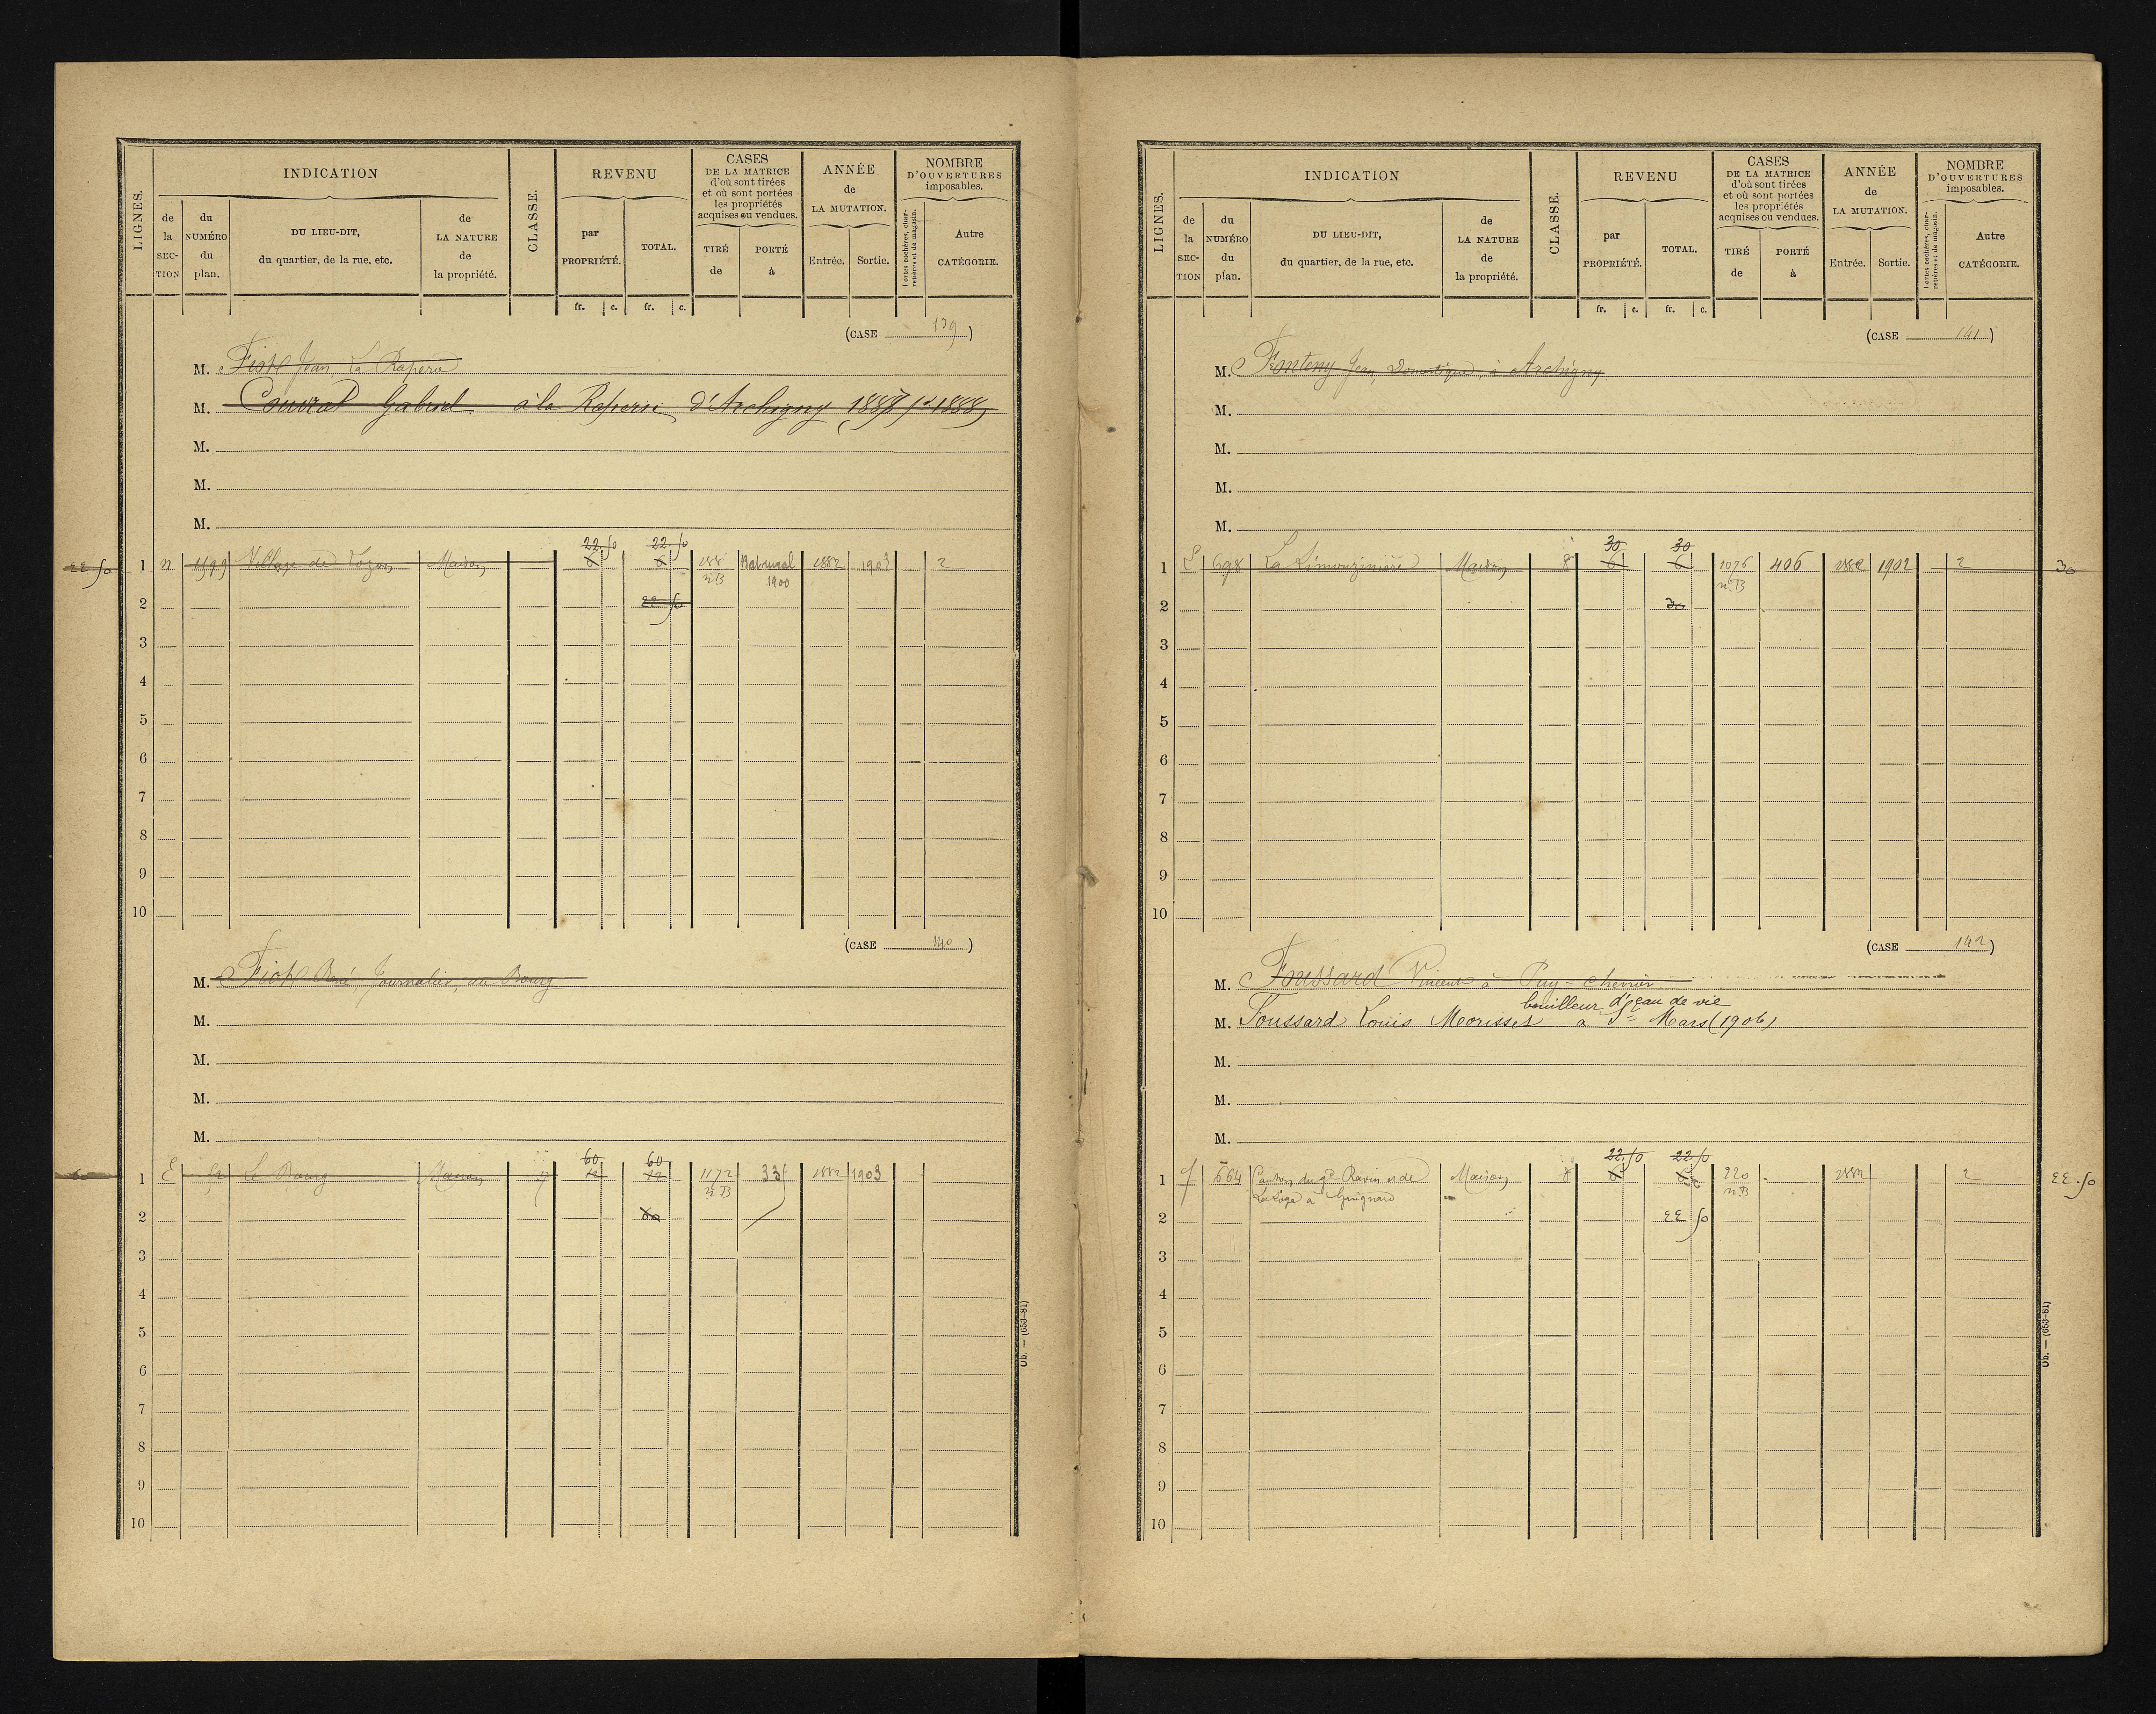 LIGNES.
INDICATION
CLASSE.
REVENU
CASES
DE LA MATRICE
d'où sont tirées
et où sont portées
les propriétés
acquises ou vendues.
ANNÉE
de
LA MUTATION.
NOMBRE
D'OUVERTURES
imposables.
de
la
SEC-
TION
du
NUMÉRO
du
plan.
DU LIEU-DIT,
du quartier, de la rue, etc.
de
LA NATURE
de
la propriété.
par
PROPRIÉTÉ.
TOTAL.
TIRÉ
de
PORTÉ
à
Entrée.
Sortie.
Portes cochères, char-
retières et de magasin.
Autre
CATÉGORIE.
fr. c. fr. c.
(CASE 139)
M. Fiot Jean, La Raperie
M. Couvrat Gabriel à la Raperie d'Archigny
M.
M.
M.
22.50 22.50
22 50 1 n Village de Maison 6 6 1882 1903 2
n.B 1900
2 22 50
3
4
5
6
7
8
9
10
(CASE 140)
M. Fiot René, Journalier, au Bourg
M.
M.
M.
M.
60 60
60 1 E 52 Le Bourg Maison 7 12 12 1172 335 1882 1903
n.B
2 60
3
4
5
6
7
8
9
10
Ob. — (653-81)
LIGNES.
INDICATION
CLASSE.
REVENU
CASES
DE LA MATRICE
d'où sont tirées
et où sont portées
les propriétés
acquises ou vendues.
ANNÉE
de
LA MUTATION.
NOMBRE
D'OUVERTURES
imposables.
de
la
SEC-
TION
du
NUMÉRO
du
plan.
DU LIEU-DIT,
du quartier, de la rue, etc.
de
LA NATURE
de
la propriété.
par
PROPRIÉTÉ.
TOTAL.
TIRÉ
de
PORTÉ
à
Entrée.
Sortie.
Portes cochères, char-
retières et de magasin.
Autre
CATÉGORIE.
fr. c. fr. c.
(CASE 141)
M. Fonteny Jean, Domestique, à Archigny
M.
M.
M.
M.
30 30
1 698 La Limouzinière Maison 8 6 6 1076 406 1882 1902 2 30
n.B
2 30
3
4
5
6
7
8
9
10
(CASE 142)
M. Foussard Vincent à Puy-chevrier
bouilleur d'eau de vie
M. Foussard Louis Morisset a St Mars (1906)
M.
M.
M.
22.50 22.50
1 664 du gd Ravin et de Maison 8 6 6 220 1882 2 22.50
La Loge a Guignard n.B
2 22 50
3
4
5
6
7
8
9
10
Ob. — (653-81)